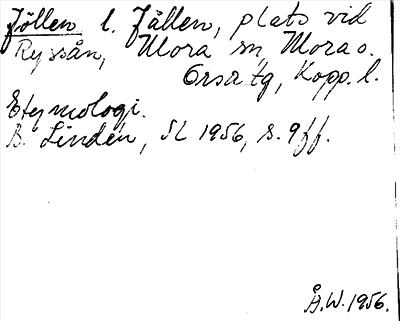 Jöllen l. Jällen, plats vid
Ryssån, Mora sn, Mora o.
Orsa tg, Kopp. l.
Etymologi.
B. Lindén, SL 1956, s. 9 ff.
Å.W. 1956.